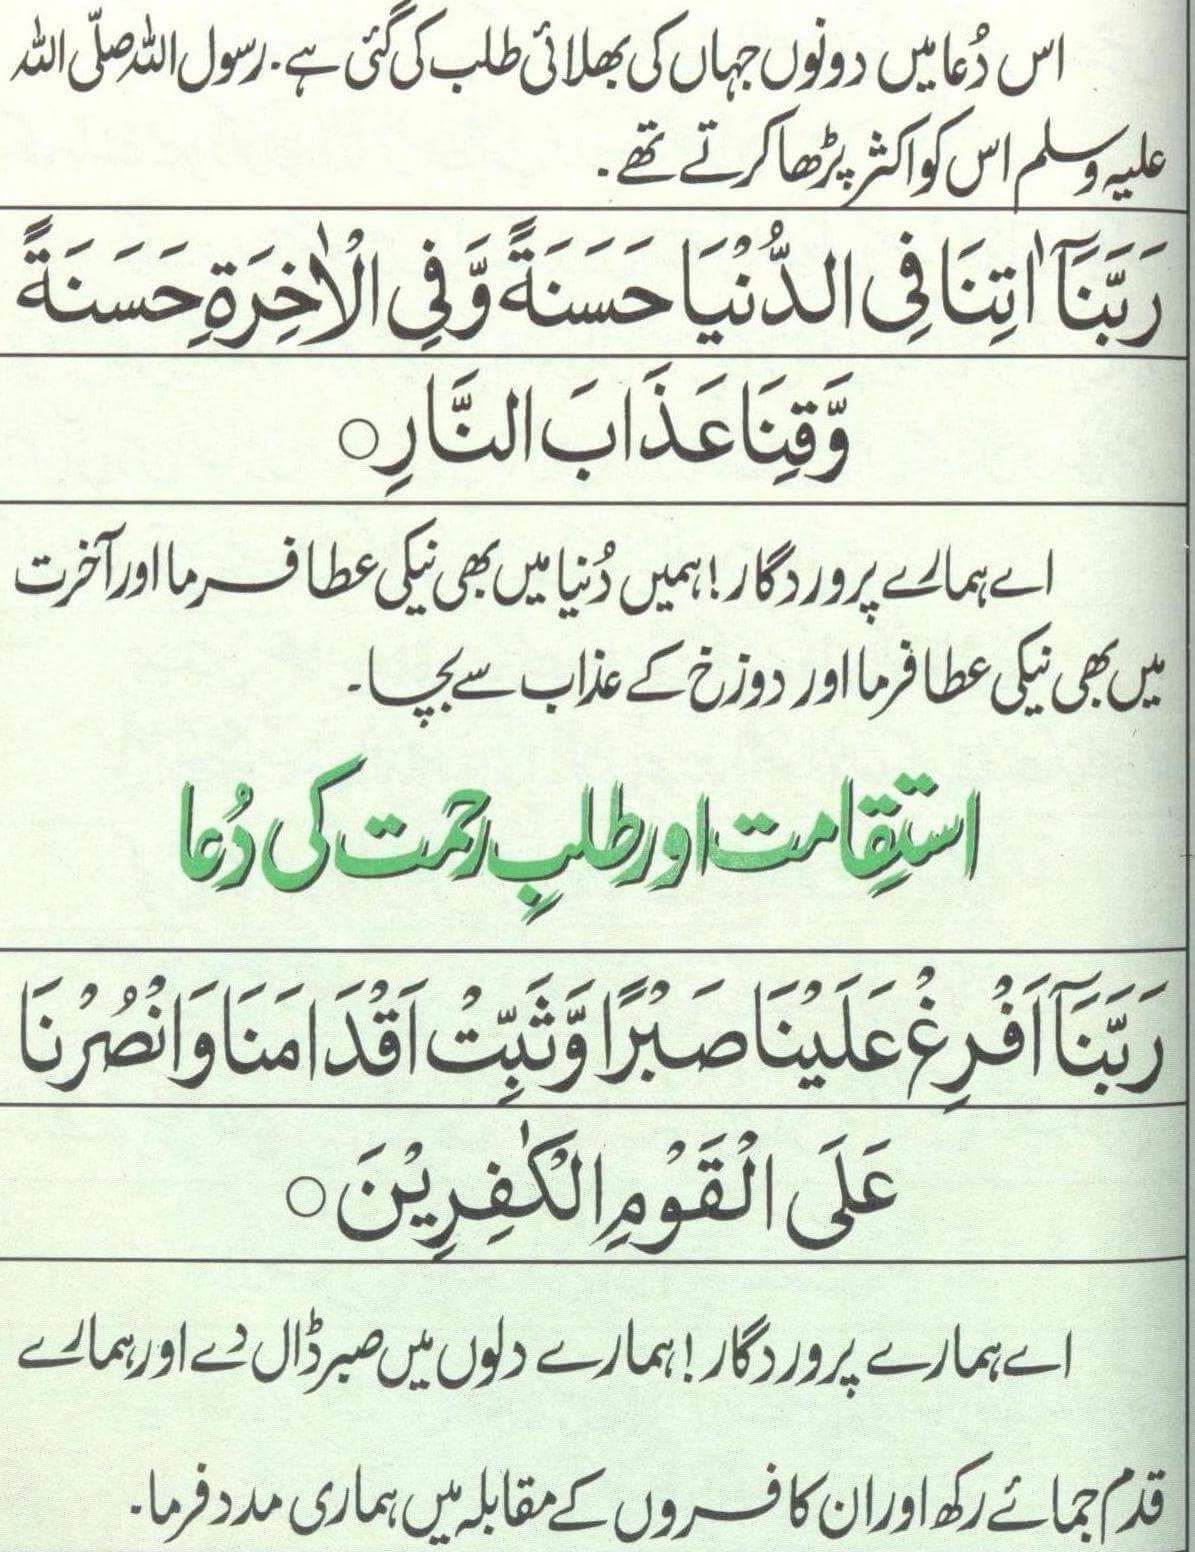 اس دُعا میں دونوں جہاں کی بھلائی طلب کی گئی ہے۔ رسول اللہ صلّی اللہ
علیہ وسلم اس کو اکثر پڑھا کرتے تھے۔
رَبَّنَآ اٰتِنَا فِی الدُّنْیَا حَسَنَةً وَّفِی الْاٰخِرَةِ حَسَنَةً
وَّقِنَا عَذَابَ النَّارِ ○
اے ہمارے پروردگار! ہمیں دُنیا میں بھی نیکی عطا فرما اور آخرت
میں بھی نیکی عطا فرما اور دوزخ کے عذاب سے بچا۔
استِقامت اور طلبِ رحمت کی دُعا
رَبَّنَآ اَفْرِغْ عَلَیْنَا صَبْرًا وَّثَبِّتْ اَقْدَامَنَا وَانْصُرْنَا
عَلَی الْقَوْمِ الْکٰفِرِیْنَ ○
اے ہمارے پروردگار! ہمارے دلوں میں صبر ڈال دے اور ہمارے
قدم جمائے رکھ اور ان کافروں کے مقابلہ میں ہماری مدد فرما۔